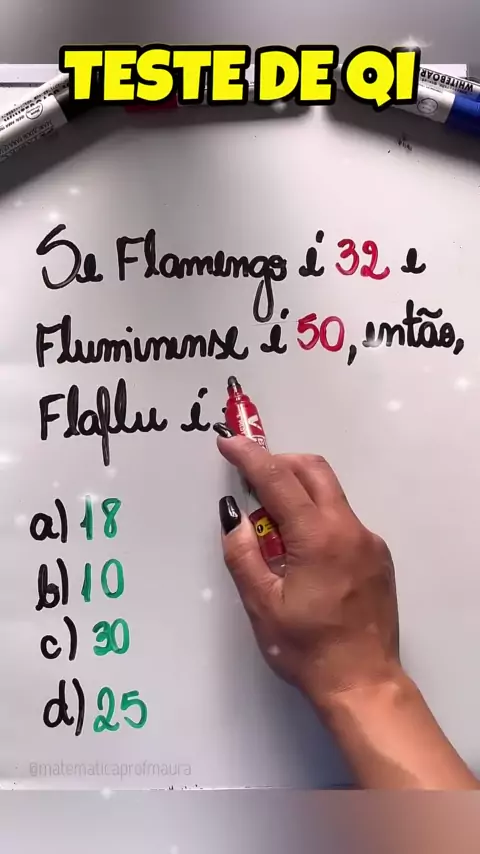 TESTE DE QI
WHITEBOARD
Se Flamengo é 32 e
Fluminense é 50, então,
Flaflu é
a) 18
b) 10
c) 30
d) 25
@matematicaprofmaura